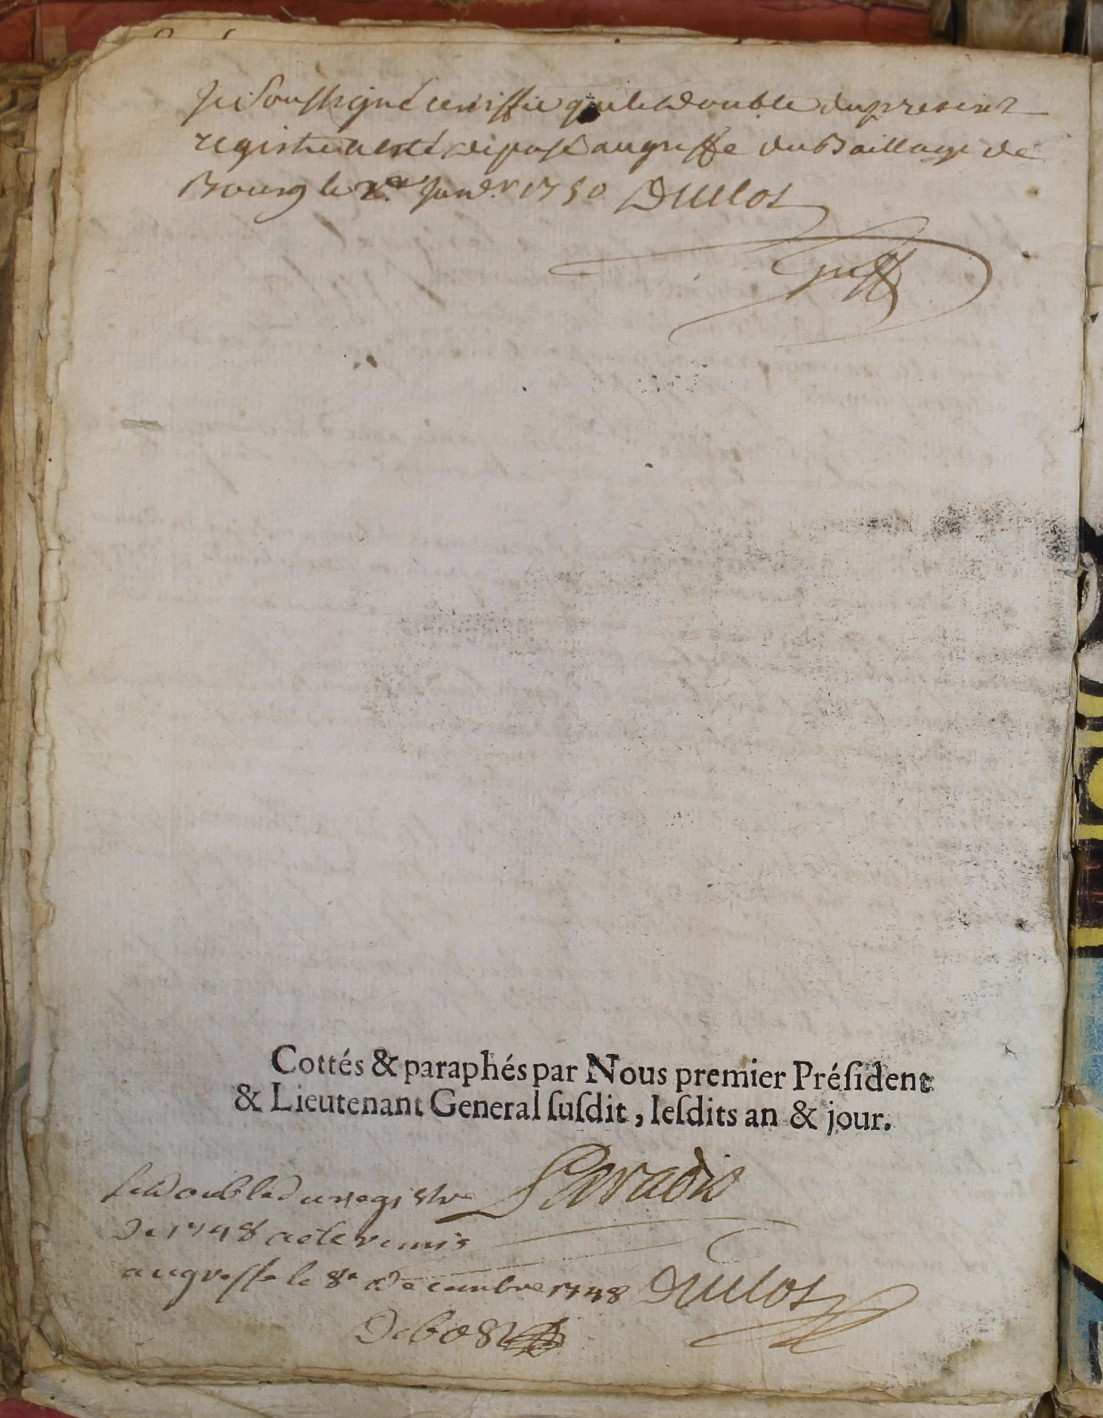 Je Soussigné certiffie que le double du present
registre a esté deposé au greffe du Baillage de
Bourg le 2.e Janv.r 1750 Duclos
Greff
Cottés & paraphés par Nous premier Préſident
& Lieutenant General ſuſdit, leſdits an & jour.
Paradis
Le double du registre
De 1748 a ete remis
au greffe le 8e decembre 1748 Duclos
Debost